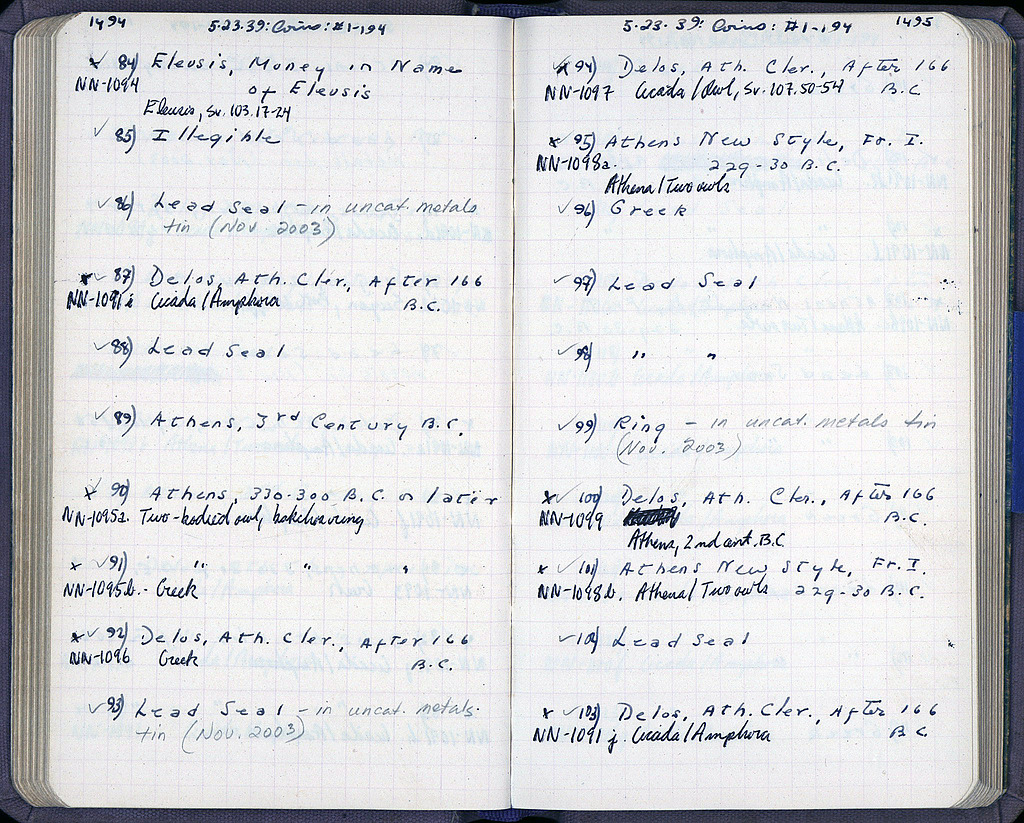 1494
5.23.39: Coins: #1-194
x ✓ 84) Eleusis, Money in Name
NN-1094 of Eleusis
Eleusis, Sv. 103.17-24
✓ 85) Illegible
✓ 86) Lead Seal - in uncat. metals
tin (Nov. 2003)
x ✓ 87) Delos, Ath. Cler., After 166
NN-1091 i Cicada/Amphora B.C.
✓ 88) Lead Seal
✓ 89) Athens, 3rd Century B.C.
x ✓ 90) Athens, 330-300 B.C. or later
NN-1095a. Two-bodied owl,
x ✓ 91) " " "
NN-1095b. - Greek
x ✓ 92) Delos, Ath. Cler., After 166
NN-1096 Greek B.C.
✓ 93) Lead Seal - in uncat. metals.
tin (Nov. 2003)
5.23.39: Coins: #1-194
1495
x ✓ 94) Delos, Ath. Cler., After 166
NN-1097 Cicada/Owl, Sv. 107.50-54 B.C
x ✓ 95) Athens New Style, Fr. I.
NN-1098a. 229-30 B.C.
Athena/Two owls
✓ 96) Greek
✓ 97) Lead Seal
✓ 98) " "
✓ 99) Ring - in uncat. metals tin
(Nov. 2003)
x ✓ 100) Delos, Ath. Cler., After 166
NN-1099 B.C.
Athens, 2nd cent. B.C.
x ✓ 101) Athens New Style, Fr. I.
NN-1098b. Athena/Two owls 229-30 B.C.
✓ 102) Lead Seal
x ✓ 103) Delos, Ath. Cler., After 166
NN-1091 j. Cicada/Amphora B.C.